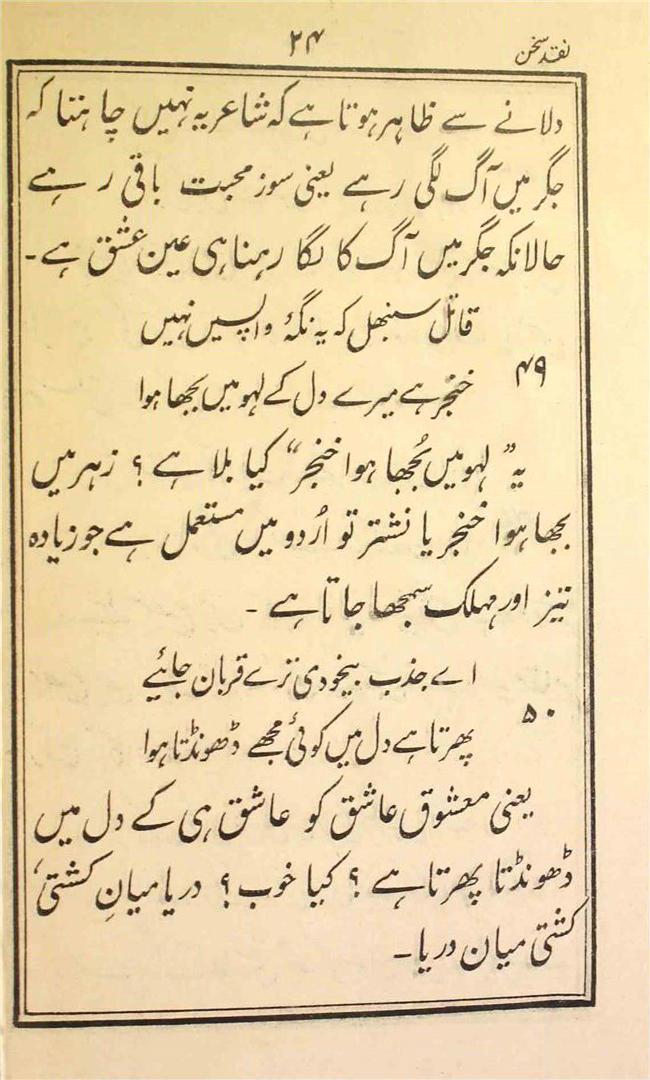 نقد سخن
۲۴
دلانے سے ظاہر ہوتا ہے کہ شاعر یہ نہیں چاہتا کہ
جگر میں آگ لگی رہے یعنی سوز محبت باقی رہے
حالانکہ جگر میں آگ کا لگا رہنا ہی عین عشق ہے۔
قاتل سنبھل کہ یہ نگۂ واپسیں نہیں
۴۹
خنجر ہے میرے دل کے لہو میں بجھا ہوا
یہ ”لہو میں بُجھا ہوا خنجر“ کیا بلا ہے ؟ زہر میں
بجھا ہوا خنجر یا نشتر تو اُردو میں مستعمل ہے جو زیادہ
تیز اور مہلک سمجھا جاتا ہے ۔
اے جذب بیخودی ترے قربان جائیے
۵۰
پھرتا ہے دل میں کوئی مجھے ڈھونڈتا ہوا
یعنی معشوق عاشق کو عاشق ہی کے دل میں
ڈھونڈتا پھرتا ہے ؟ کیا خوب ؟ دریا میانِ کشتی،
کشتی میان دریا۔